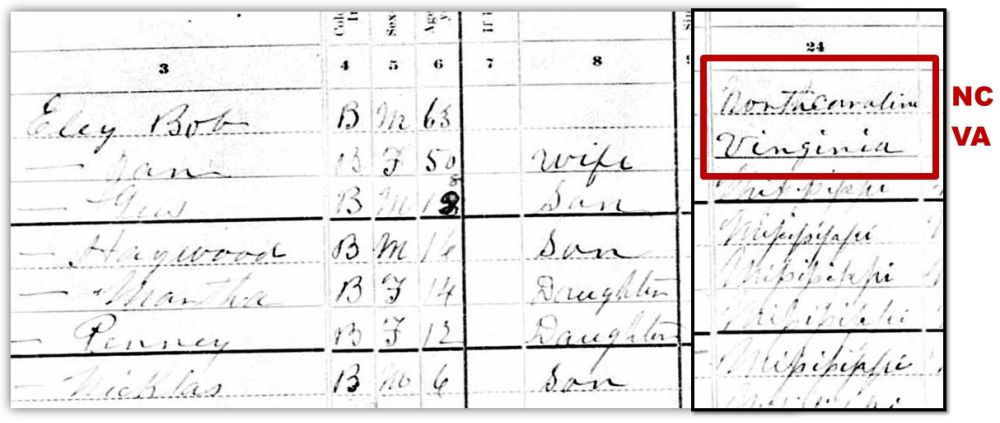 24
3 4 5 6 7 8
Eley Bob B M 63 Northcarolina NC
— Jan B F 50 Wife Virginia VA
— Gus B M Son
— Haywood B M 16 Son Mississippi
— Martha B F 14 Daughter Mississippi
— Penney B F 12 Daughter Mississippi
— Nicklas B M 6 Son Mississippi